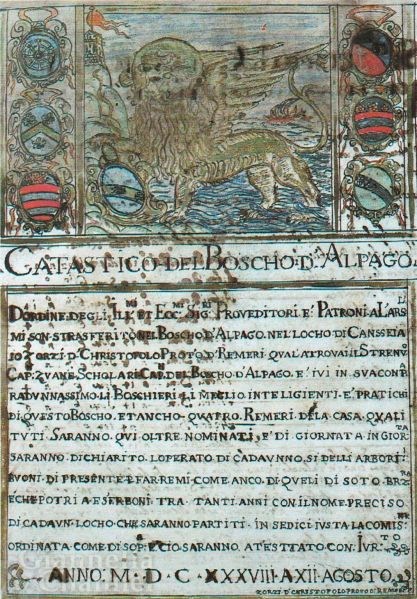 CATASTICO·DEL·BOSCHO·D'ALPAGO
D'ORDINE·DEGLI·ILL.MI ET·ECC.MI SIG.RI PROVEDITORI·E·PATRONI·A L'ARS
MI SON·STRASFERITO·NEL·BOSCO·D'ALPAGO·NEL·LOCHO·DI CANSSEIA
IO ZORZI·D'CHRISTOFOLO PROTO·D'REMERI QVAL·ATROVAI·IL STRENV
CAP: ZVANE SCHOLARI CAP. DEL BOSCHO·D'ALPAGO·E·IVI IN SVA CONT
RADVNNASSIMO·LI BOSCHIERI·LI MEGLIO·INTELIGIENTI·E·PRATICHI
DI QVESTO BOSCHO·ET ANCHO·QVATRO·REMERI DE LA CASA·QVALI
TVTI·SARANNO·QVI OLTRE·NOMINATI·E·DI·GIORNATA·IN GIOR
SARANNO·DI CHIARITO·L'OPERATO·DI CADAVNNO·SI DELLI ARBORI
BVONI·DI PRESENTE A FAR REMI·COME ANCO·DI QVELI·DI SOTO
CHE POTRIA ESER BONI·TRA·TANTI·ANNI·CON IL NOME PRECISO
DI CADAVN·LOCHO·CHE SARANNO PARTITI·IN SEDICI·IVSTA LA COMIS
ORDINATA·COME DI SOPECIO SARANNO·ATESTATO CON·IVR.TO
ANNO·M·D·C·XXXVIII·A·XII·AGOSTO
ZORZI·D'CHRISTOFOLO PROTO D'REMERI